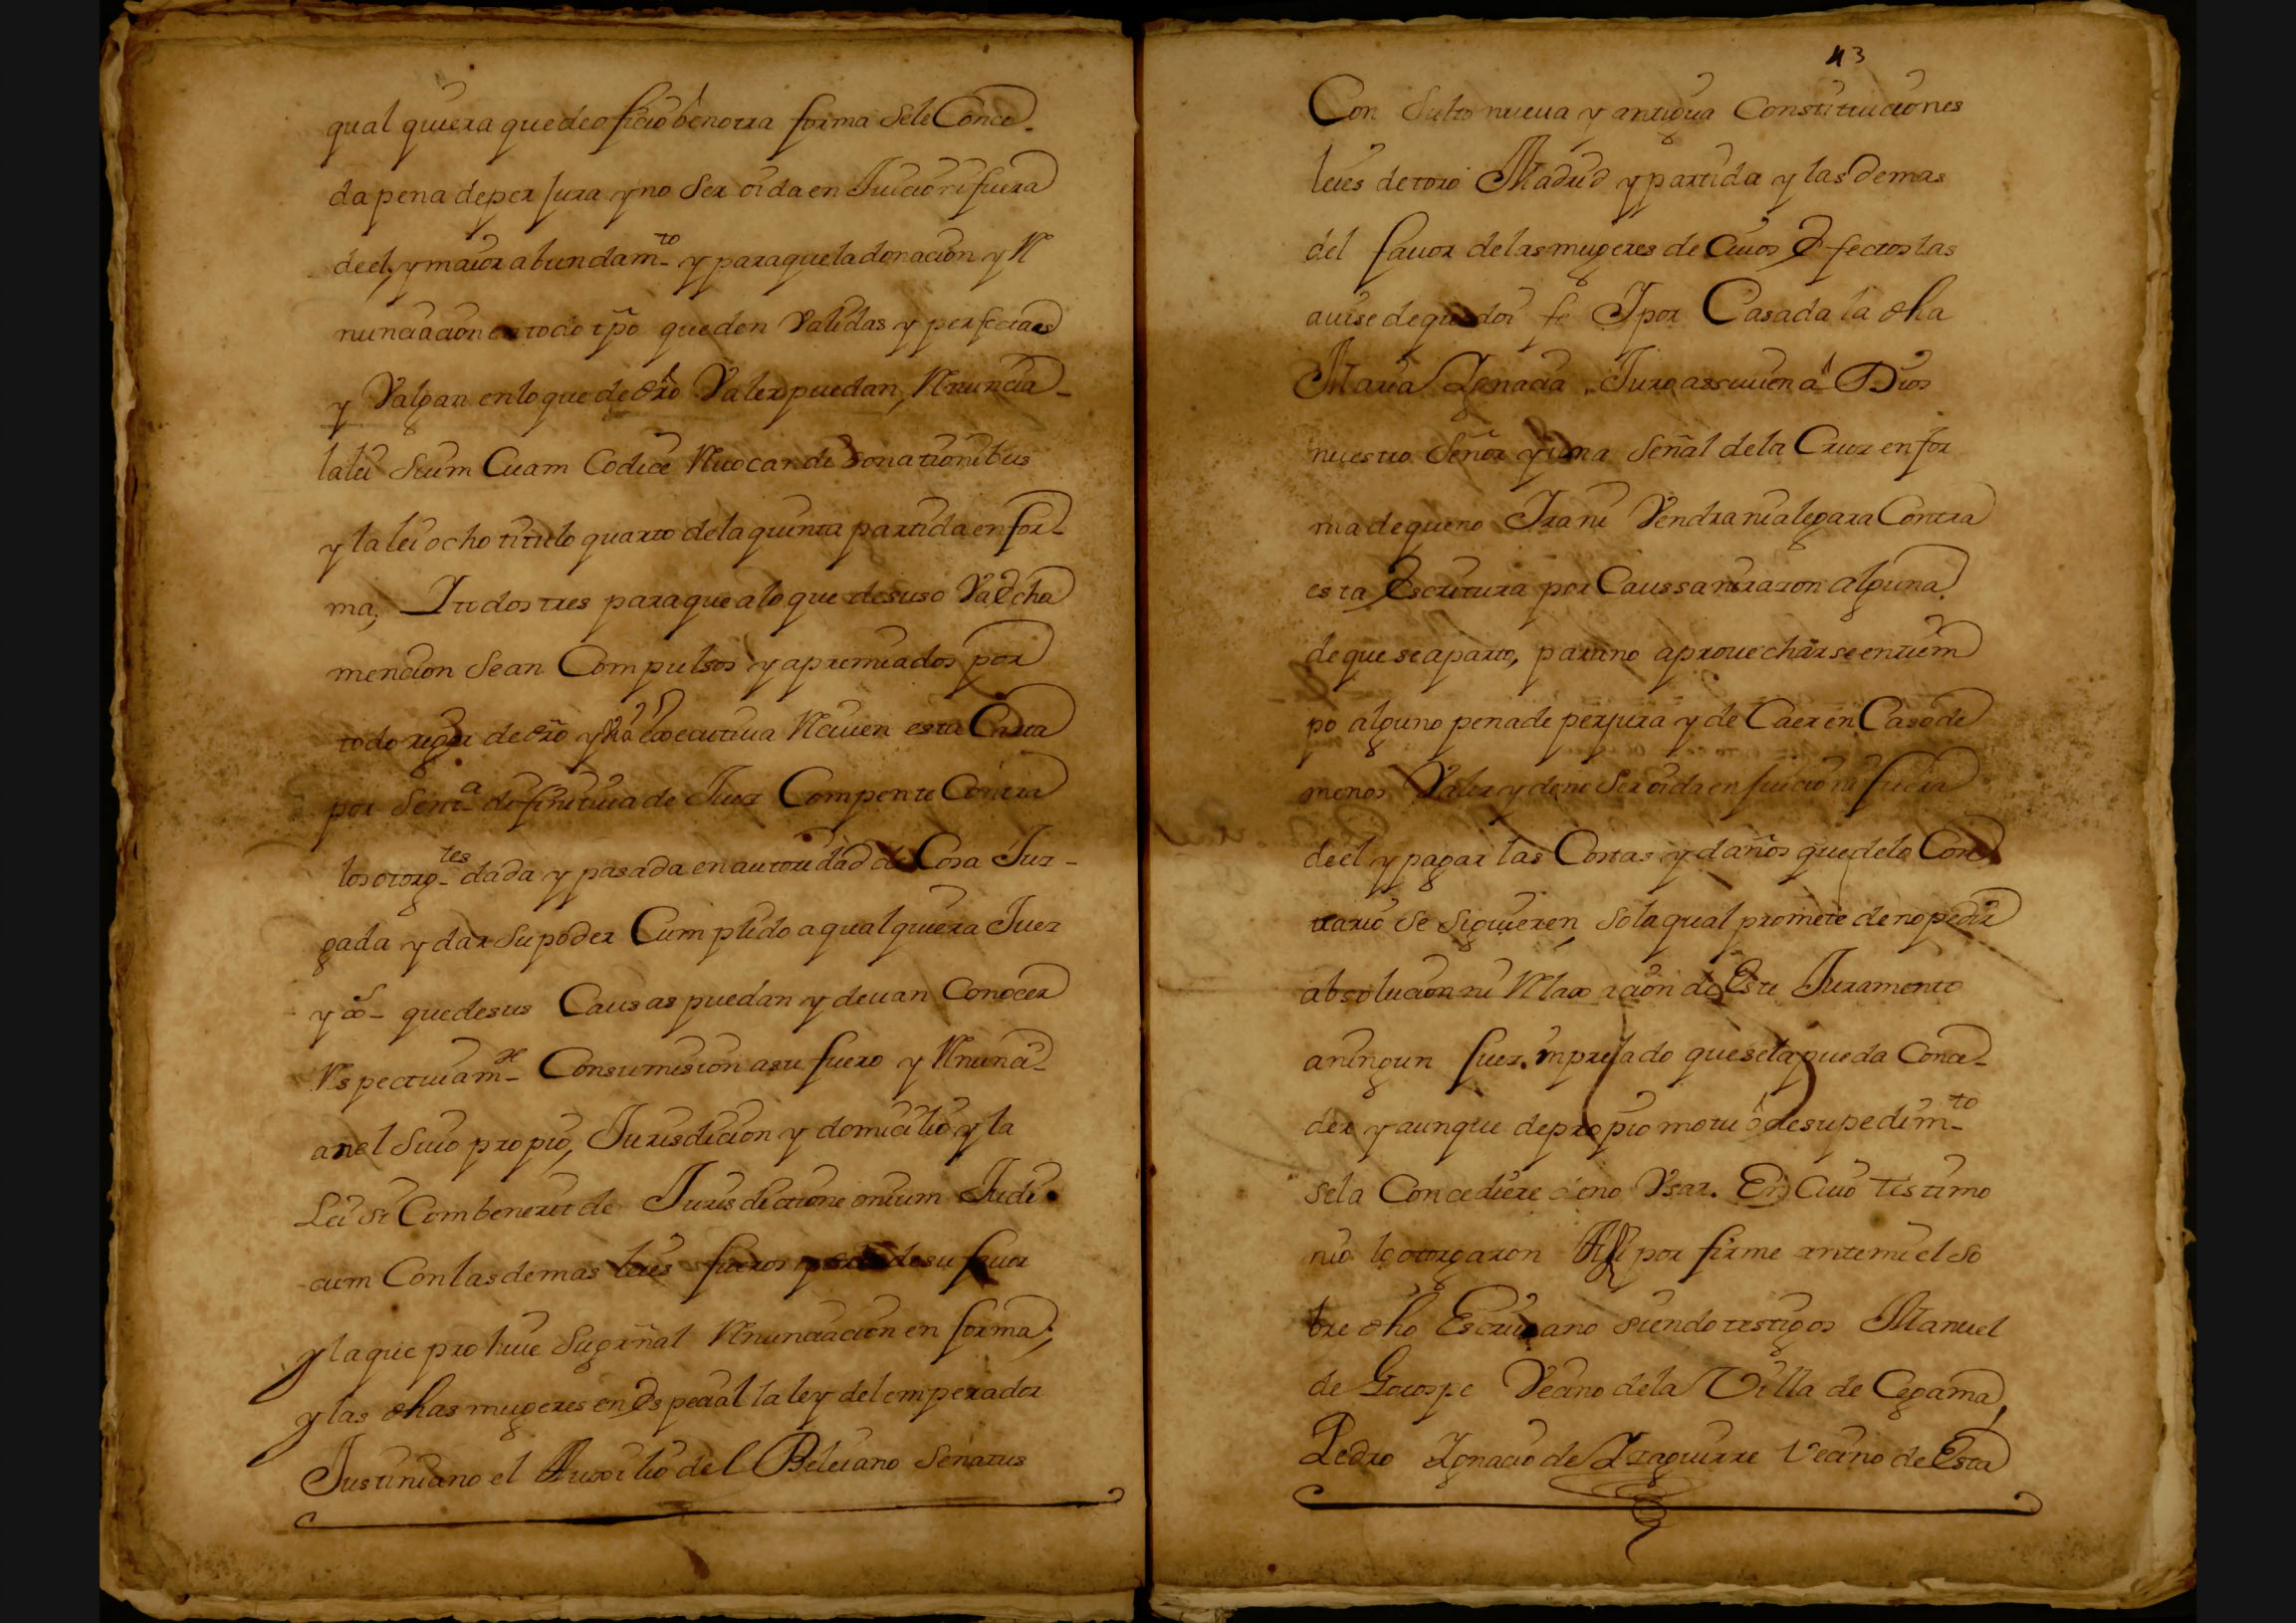 qual quiera que de oficio ô en otra forma Se le Conce-
da pena deper jura y no Ser oida en Juicio ni fuera
de el, y maior abundam.to y para que la donacion y Re
nunciacion en todo tpo queden Validas y perfectas
y Valgan en lo que de dro Valer puedan, Renuncia-
la lei Sium Cuam Codice Reuocandi donationibus
y la lei ocho titulo quarto de la quinta partida en for-
ma, I todos tres para que a lo que de suso Va dcha
mencion Sean Compulsos y apremiados por
todo rigor de dro y Via executiua Reciuen esta Carta
por Sent.a definitiua de Juez Compente Contra
los otorg.tes dada y pasada en autoridad de Cosa Juz-
gada y dar Su poder Cumplido a qual quiera Juez
y que de sus Causas puedan y deuan Conocer
Respectiuam.te Consumision a su fuero y Renunci-
an el Suio propio, Jurisdicion y domicilio y la
Lei Si Combenerit de Jurisdictione omium Judi
cum Con las demas leies fueros de su fauor
y la que prohiue Su grñal Renunciacion en forma;
y las dhas mugeres en Especial la ley del emperador
Justiniano el Auxilio del Beleiano Senatus
43
Con Sulto nueua y antigua Constituciones
leies de toro Madrid y partida y las demas
del fauor de las mugeres de Cuios Efectos las
auise de que doi fe I por Casada la dha
Maria Ignacia, Juro assimien â Dios
nuestro Señor y una Señal de la Cruz en for
ma de que no Ira ni Vendra ni alegara Contra
esta Escritura por Caussa ni razon alguna
de que se aparto, para no aprouecharse en tiem
po alguno pena de perjura y de Caer en Caso de
menos Valer y de no Ser oida en juicio ni fuera
de el y pagar las Costas y daños que de lo Con
trario Se Siguieren, So la qual promete de no pedir
absolucion ni Relaxacion de Este Juramento
a ningun juez, in prelado que se la pueda Conce-
der y aunque de propio motu ô de su pedim.to
se la Concediere de no Vsar. En Cuio testimo
nio lo otorgaron Assi por firme ante mi el So
bre dho Escriuano Siendo testigos Manuel
de Gorospe Vecino de la Villa de Cegama,
Pedro Ignacio de Izaguirre Vecino de Esta